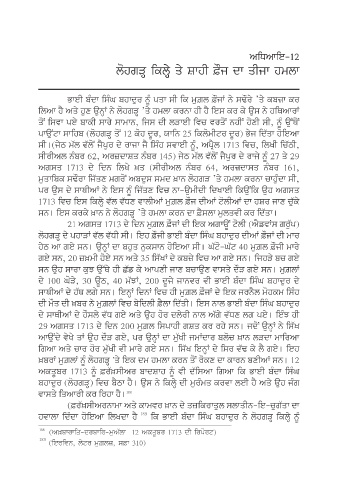 ਅਧਿਆਇ-12
ਲੋਹਗੜ੍ਹ ਕਿਲ੍ਹੇ ਤੇ ਸ਼ਾਹੀ ਫ਼ੌਜ ਦਾ ਤੀਜਾ ਹਮਲਾ
ਭਾਈ ਬੰਦਾ ਸਿੰਘ ਬਹਾਦੁਰ ਨੂੰ ਪਤਾ ਸੀ ਕਿ ਮੁਗ਼ਲ ਫ਼ੌਜਾਂ ਨੇ ਸਢੌਰੇ 'ਤੇ ਕਬਜ਼ਾ ਕਰ
ਲਿਆ ਹੈ ਅਤੇ ਹੁਣ ਉਨ੍ਹਾਂ ਨੇ ਲੋਹਗੜ੍ਹ 'ਤੇ ਹਮਲਾ ਕਰਨਾ ਹੀ ਹੈ ਇਸ ਕਰ ਕੇ ਉਸ ਨੇ ਹਥਿਆਰਾਂ
ਤੋਂ ਸਿਵਾ ਪਏ ਬਾਕੀ ਸਾਰੇ ਸਾਮਾਨ, ਜਿਸ ਦੀ ਲੜਾਈ ਵਿਚ ਵਰਤੋਂ ਨਹੀਂ ਹੋਣੀ ਸੀ, ਨੂੰ ਉੱਥੋਂ
ਪਾਉਂਟਾ ਸਾਹਿਬ (ਲੋਹਗੜ੍ਹ ਤੋਂ 12 ਕੋਹ ਦੂਰ, ਯਾਨਿ 25 ਕਿਲੋਮੀਟਰ ਦੂਰ) ਭੇਜ ਦਿੱਤਾ ਹੋਇਆ
ਸੀ। (ਜੇਠ ਮੱਲ ਵੱਲੋਂ ਜੈਪੁਰ ਦੇ ਰਾਜਾ ਜੈ ਸਿੰਹ ਸਵਾਈ ਨੂੰ, ਅਪ੍ਰੈਲ 1713 ਵਿਚ, ਲਿਖੀ ਚਿੱਠੀ,
ਸੀਰੀਅਲ ਨੰਬਰ 62, ਅਰਜ਼ਦਾਸ਼ਤ ਨੰਬਰ 145) ਜੇਠ ਮੱਲ ਵੱਲੋਂ ਜੈਪੁਰ ਦੇ ਰਾਜੇ ਨੂੰ 27 ਤੇ 29
ਅਗਸਤ 1713 ਦੇ ਦਿਨ ਲਿਖੇ ਖ਼ਤ (ਸੀਰੀਅਲ ਨੰਬਰ 64, ਅਰਜ਼ਦਾਸਤ ਨੰਬਰ 161,
ਮੁਤਾਬਿਕ ਸਢੌਰਾ ਜਿੱਤਣ ਮਗਰੋਂ ਅਬਦੁਸ ਸਮਦ ਖ਼ਾਨ ਲੋਹਗੜ 'ਤੇ ਹਮਲਾ ਕਰਨਾ ਚਾਹੁੰਦਾ ਸੀ,
ਪਰ ਉਸ ਦੇ ਸਾਥੀਆਂ ਨੇ ਇਸ ਨੂੰ ਜਿੱਤਣ ਵਿਚ ਨਾ-ਉਮੀਦੀ ਦਿਖਾਈ ਕਿਉਂਕਿ ਉਹ ਅਗਸਤ
1713 ਵਿਚ ਇਸ ਕਿਲ੍ਹੇ ਵੱਲ ਵੱਧਣ ਵਾਲੀਆਂ ਮੁਗ਼ਲ ਫ਼ੌਜ ਦੀਆਂ ਟੋਲੀਆਂ ਦਾ ਹਸ਼ਰ ਜਾਣ ਚੁੱਕੇ
ਸਨ। ਇਸ ਕਰਕੇ ਖ਼ਾਨ ਨੇ ਲੋਹਗੜ੍ਹ 'ਤੇ ਹਮਲਾ ਕਰਨ ਦਾ ਫ਼ੈਸਲਾ ਮੁਲਤਵੀ ਕਰ ਦਿੱਤਾ।
21 ਅਗਸਤ 1713 ਦੇ ਦਿਨ ਮੁਗ਼ਲ ਫ਼ੌਜਾਂ ਦੀ ਇਕ ਅਗਾਊਂ ਟੋਲੀ (ਐਡਵਾਂਸ ਗਰੁੱਪ)
ਲੋਹਗੜ੍ਹ ਦੇ ਪਹਾੜਾਂ ਵੱਲ ਵੱਧੀ ਸੀ। ਇਹ ਫ਼ੌਜੀ ਭਾਈ ਬੰਦਾ ਸਿੰਘ ਬਹਾਦੁਰ ਦੀਆਂ ਫ਼ੌਜਾਂ ਦੀ ਮਾਰ
ਹੇਠ ਆ ਗਏ ਸਨ। ਉਨ੍ਹਾਂ ਦਾ ਬਹੁਤ ਨੁਕਸਾਨ ਹੋਇਆ ਸੀ। ਘੱਟੋ-ਘੱਟ 40 ਮੁਗ਼ਲ ਫ਼ੌਜੀ ਮਾਰੇ
ਗਏ ਸਨ, 20 ਜ਼ਖ਼ਮੀ ਹੋਏ ਸਨ ਅਤੇ 35 ਸਿੱਖਾਂ ਦੇ ਕਬਜ਼ੇ ਵਿਚ ਆ ਗਏ ਸਨ। ਜਿਹੜੇ ਬਚ ਗਏ
ਸਨ ਉਹ ਸਾਰਾ ਕੁਝ ਉੱਥੇ ਹੀ ਛੱਡ ਕੇ ਆਪਣੀ ਜਾਣ ਬਚਾਉਣ ਵਾਸਤੇ ਦੌੜ ਗਏ ਸਨ। ਮੁਗ਼ਲਾਂ
ਦੇ 100 ਘੋੜੇ, 30 ਊਠ, 40 ਮੱਝਾਂ, 200 ਦੂਜੇ ਜਾਨਵਰ ਵੀ ਭਾਈ ਬੰਦਾ ਸਿੰਘ ਬਹਾਦੁਰ ਦੇ
ਸਾਥੀਆਂ ਦੇ ਹੱਥ ਲਗੇ ਸਨ। ਇਨ੍ਹਾਂ ਦਿਨਾਂ ਵਿਚ ਹੀ ਮੁਗ਼ਲ ਫ਼ੌਜਾਂ ਦੇ ਇਕ ਜਰਨੈਲ ਮੋਹਕਮ ਸਿੰਹ
ਦੀ ਮੌਤ ਦੀ ਖ਼ਬਰ ਨੇ ਮੁਗ਼ਲਾਂ ਵਿਚ ਬੇਦਿਲੀ ਫ਼ੈਲਾ ਦਿੱਤੀ। ਇਸ ਨਾਲ ਭਾਈ ਬੰਦਾ ਸਿੰਘ ਬਹਾਦੁਰ
ਦੇ ਸਾਥੀਆਂ ਦੇ ਹੌਸਲੇ ਵੱਧ ਗਏ ਅਤੇ ਉਹ ਹੋਰ ਦਲੇਰੀ ਨਾਲ ਅੱਗੇ ਵੱਧਣ ਲਗ ਪਏ। ਇੰਝ ਹੀ
29 ਅਗਸਤ 1713 ਦੇ ਦਿਨ 200 ਮੁਗ਼ਲ ਸਿਪਾਹੀ ਗਸ਼ਤ ਕਰ ਰਹੇ ਸਨ। ਜਦੋਂ ਉਨ੍ਹਾਂ ਨੇ ਸਿੱਖ
ਆਉਂਦੇ ਵੇਖੇ ਤਾਂ ਉਹ ਦੌੜ ਗਏ, ਪਰ ਉਨ੍ਹਾਂ ਦਾ ਮੁੱਖੀ ਜਮਾਂਦਾਰ ਬਲੋਚ ਖ਼ਾਨ ਲੜਦਾ ਮਾਰਿਆ
ਗਿਆ ਅਤੇ ਚਾਰ ਹੋਰ ਮੁੱਖੀ ਵੀ ਮਾਰੇ ਗਏ ਸਨ। ਸਿੱਖ ਇਨ੍ਹਾਂ ਦੇ ਸਿਰ ਵੱਢ ਕੇ ਲੈ ਗਏ। ਇਹ
ਖ਼ਬਰਾਂ ਮੁਗ਼ਲਾਂ ਨੂੰ ਲੋਹਗੜ੍ਹ 'ਤੇ ਇਕ ਦਮ ਹਮਲਾ ਕਰਨ ਤੋਂ ਰੋਕਣ ਦਾ ਕਾਰਨ ਬਣੀਆਂ ਸਨ। 12
ਅਕਤੂਬਰ 1713 ਨੂੰ ਫ਼ਰੱਖ਼ਸੀਅਰ ਬਾਦਸ਼ਾਹ ਨੂੰ ਵੀ ਦੱਸਿਆ ਗਿਆ ਕਿ ਭਾਈ ਬੰਦਾ ਸਿੰਘ
ਬਹਾਦੁਰ (ਲੋਹਗੜ੍ਹ) ਵਿਚ ਬੈਠਾ ਹੈ। ਉਸ ਨੇ ਕਿਲ੍ਹੇ ਦੀ ਮੁਰੰਮਤ ਕਰਵਾ ਲਈ ਹੈ ਅਤੇ ਉਹ ਜੰਗ
ਵਾਸਤੇ ਤਿਆਰੀ ਕਰ ਰਿਹਾ ਹੈ।
(ਫ਼ਰੱਖ਼ਸੀਅਰਨਾਮਾ ਅਤੇ ਕਾਮਵਰ ਖ਼ਾਨ ਦੇ ਤਜ਼ਕਿਰਾਤੁਲ ਸਲਾਤੀਨ-ਇ-ਚੁਗੱਤਾ ਦਾ
ਹਵਾਲਾ ਦਿੰਦਾ ਹੋਇਆ ਲਿਖਦਾ ਹੈ ਕਿ ਭਾਈ ਬੰਦਾ ਸਿੰਘ ਬਹਾਦੁਰ ਨੇ ਲੋਹਗੜ੍ਹ ਕਿਲ੍ਹੇ ਨੂੰ
(ਅਖ਼ਬਾਰਾਤਿ-ਦਰਬਾਰਿ-ਮੁਅੱਲਾ 12 ਅਕਤੂਬਰ 1713 ਦੀ ਰਿਪੋਰਟ)
(ਇਰਵਿਨ, ਲੇਟਰ ਮੁਗ਼ਲਜ਼, ਸਫ਼ਾ 310)